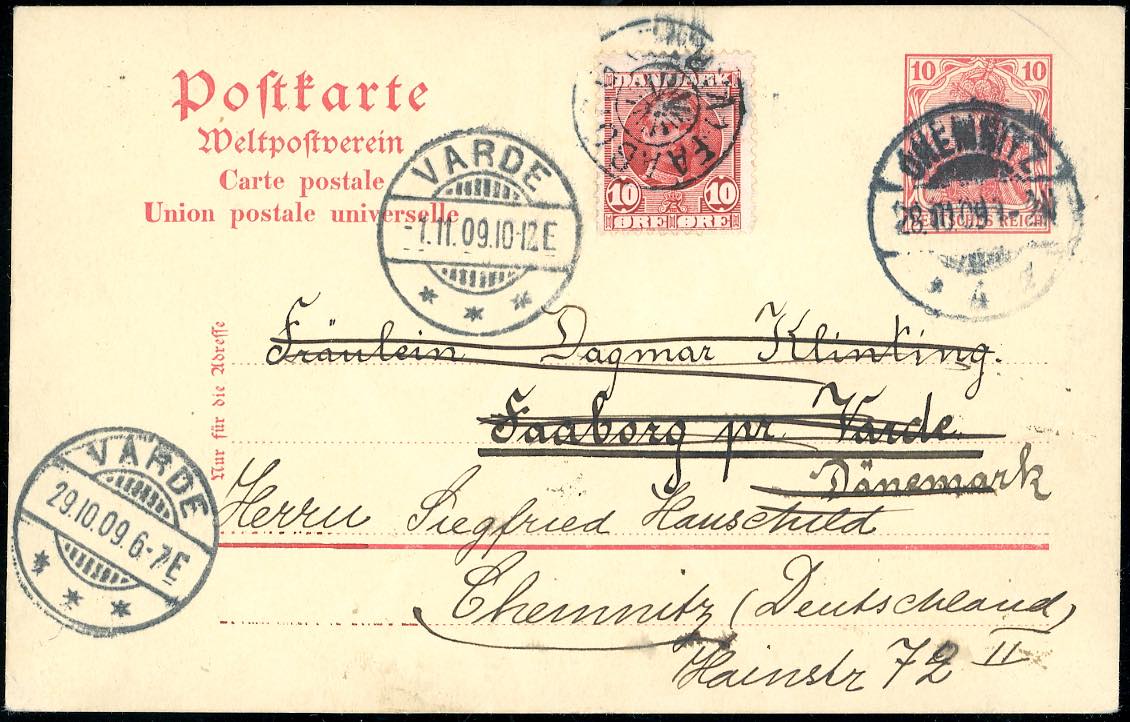 Postkarte
Weltpostverein
Carte postale
Union postale universelle
DANMARK
10 10
ØRE ØRE
FAABORG
10 10
DEUTSCHES REICH
CHEMNITZ
28.10.09
4
VARDE
-1.11.09.10-12E
Nur für die Adresse
Fräulein Dagmar Klinting.
Faaborg pr. Varde.
Dänemark
VARDE
29.10.09.6-7E
Herrn Siegfried Hauschild
Chemnitz (Deutschland)
Hainstr 72 II